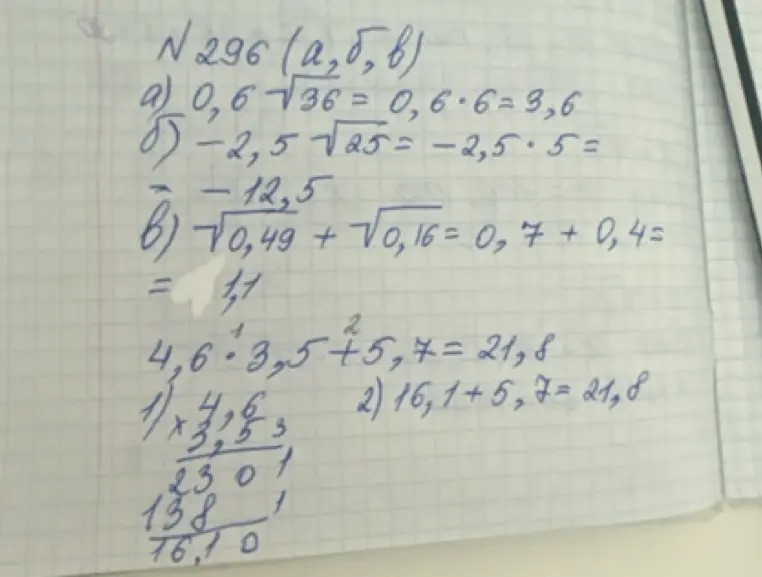 N 296 (а, б, в)
а) 0,6 √36 = 0,6 · 6 = 3,6
б) −2,5 √25 = −2,5 · 5 =
= −12,5
в) √0,49 + √0,16 = 0,7 + 0,4 =
= 1,1
1 2
4,6 · 3,5 + 5,7 = 21,8
1) 4,6
× 3,5 3
230 1
138 1
16,10
2) 16,1 + 5,7 = 21,8